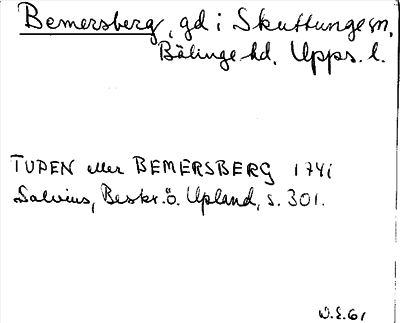 Bemersberg, gd i Skuttunge sn,
Bälinge hd, Upps. l.
TUPEN eller BEMERSBERG 1741
Salvius, Beskr. ö. Upland, s. 301.
W.E. 61